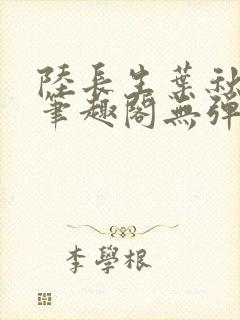 陸長生葉秋
筆趣閣無彈
李學根